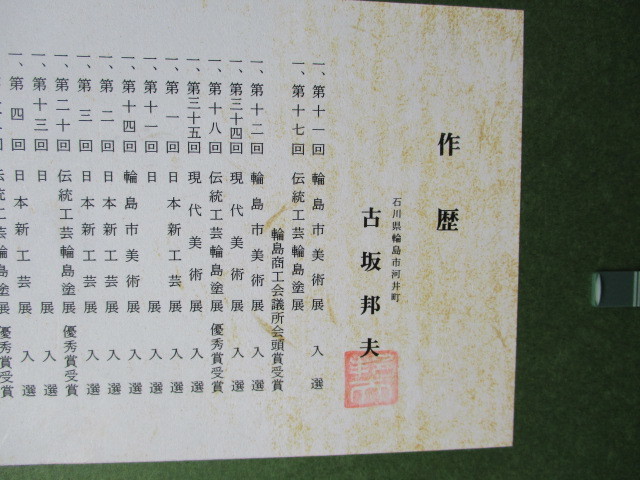 作歴
石川県輪島市河井町
古坂邦夫
一、第十一回 輪島市美術展 入選
一、第十七回 伝統工芸輪島塗展
輪島商工会議所会頭賞受賞
一、第十二回 輪島市美術展 入選
一、第三十四回 現代美術展 入選
一、第十八回 伝統工芸輪島塗展 優秀賞受賞
一、第三十五回 現代美術展 入選
一、第一回 日本新工芸展 入選
一、第十一回 日展 入選
一、第十四回 輪島市美術展 入選
一、第二回 日本新工芸展 入選
一、第三回 日本新工芸展 入選
一、第二十回 伝統工芸輪島塗展 優秀賞受賞
一、第十三回 日展 入選
一、第四回 日本新工芸展 入選
伝統工芸輪島塗展 優秀賞受賞